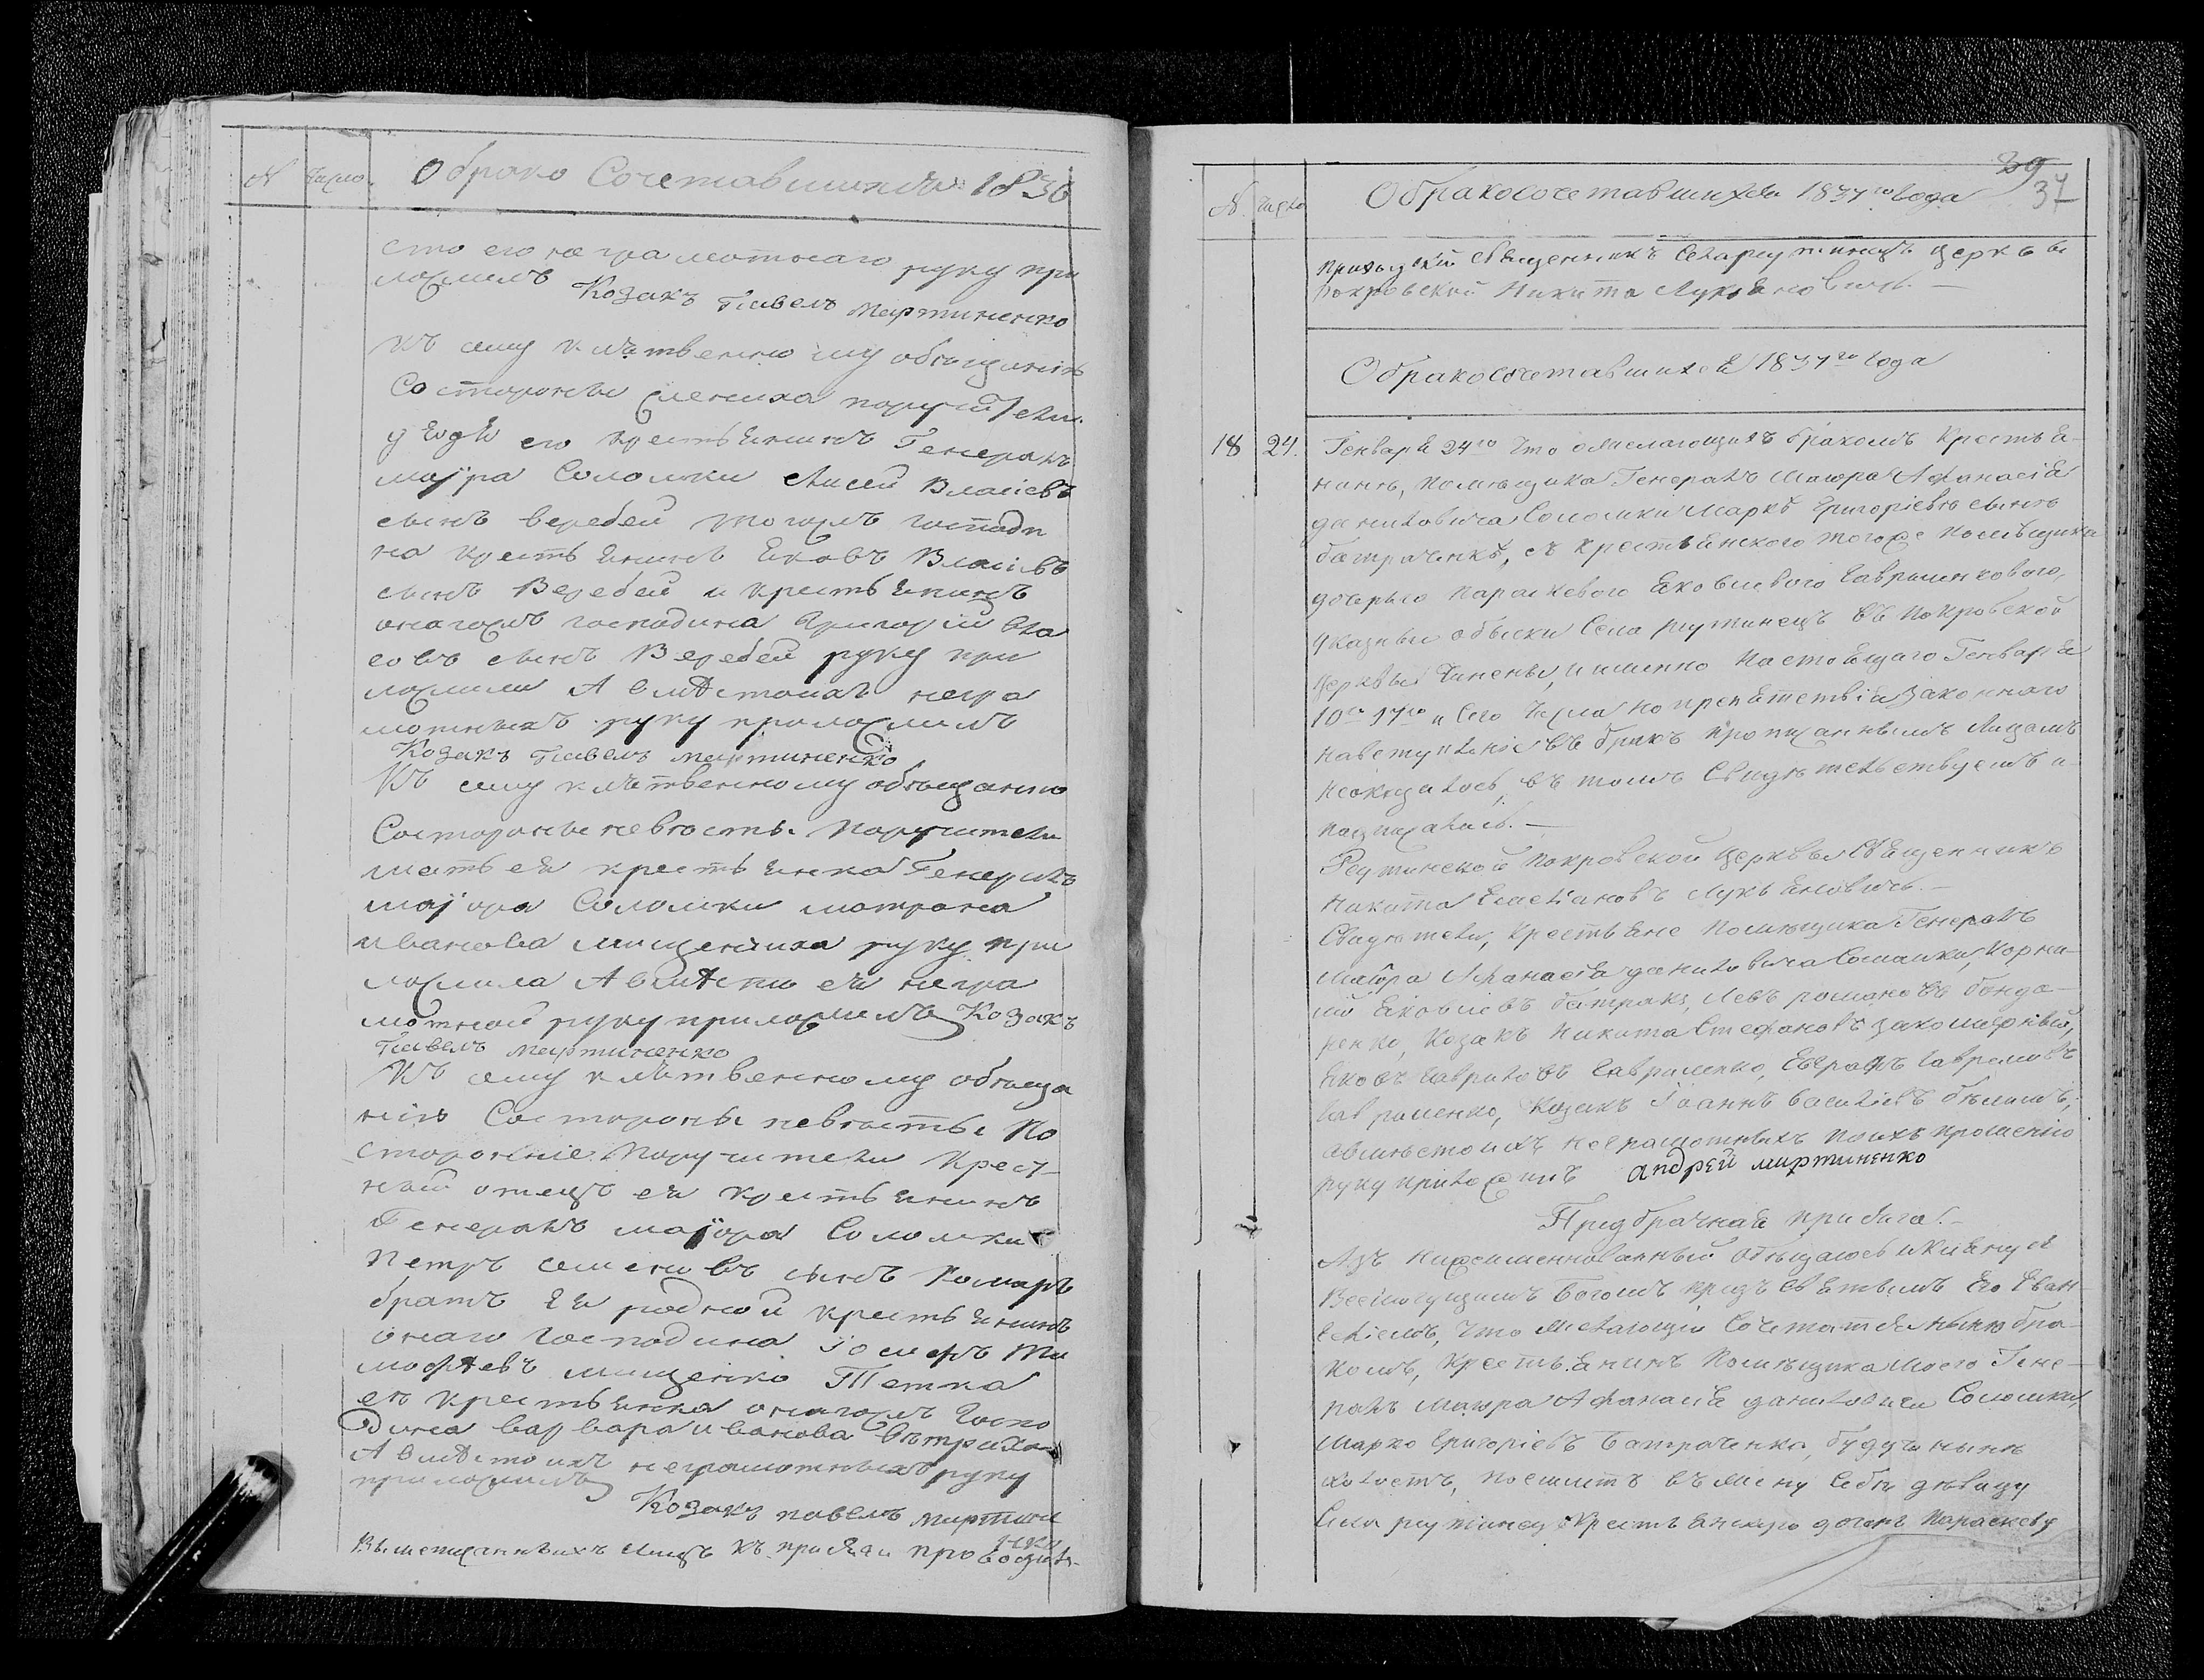 N Число. О брако Сочетавшихся 1836
сто его неграмотнаго руку при
ложилъ Козакъ Павелъ Мартиненко
Къ сему клятвенному обещанию
Состороны жениха поручители
дядя его крестьянинъ Генералъ
маіора Соломки Власіевъ
сынъ веребей тогожъ Господи
на крестьянинъ Яковъ Власіевъ
сынъ Веребей и крестьянинъ
оногожъ господина Григорій Вла
совъ сынъ Веребей руку при
ложили А вмѣсто ихъ негра
мотныхъ руку приложилъ
Козакъ Павелъ Мартиненко
Къ сему клятвенному обещанию
Состороны невѣсты Поручители
мать ея крестьянка Генералъ
маіора Соломки матрона
иванова мищенчиха руку при
ложила А вмѣсто ея негра
мотной руку приложилъ Козакъ
Павелъ Мартиненко
Къ сему клятвенному обеща
нію Состороны невѣсты По
сторонніе Поручители Крест
ный отецъ ея крестьянинъ
Генералъ маіора Соломки
Петръ семеновъ сынъ Комаръ
братъ ея родной крестьянинъ
онаго Господина Ти
мофѣевъ мищенко Тетка
ея крестьянка оногожъ Госпо
дина варвара иванова
А вмѣсто ихъ неграмотныхъ руку
приложилъ
Козакъ павелъ мартине
нко
Вышеписанныхъ Лицъ къ присяги проводилъ
39
37
N. число О бракосочетавшихся 1837го года
приходскій Священникъ Села реутинецъ церкви
покровской Никита Лукьяновичь. —
О бракосочетавшихся 1837го года
18 24. Генваря 24го Что о желающихъ бракомъ крестья-
нинъ, помѣщика Генералъ Маіора Афанасія
даниловича Соломки Марко Григоріевъ сынъ
батраченко, съ крестьянского тогоже помѣщика
дочерью параскевою Яковлевою Гавриленковою,
указные обыски Села реутинецъ въ покровской
Церквы Чинены, и именно настоящаго Генваря
10го 17го и Сего Числа но препятствія законнаго
навступленіе въ бракъ прописаннымъ Лицамъ
неоказалось, въ томъ Свидѣтельствуемъ и
подписались. —
Реутинской покровской церквы Священникъ
Никита Емеліановъ Лукьяновичь. —
Свидѣтели, крестьяне помѣщика Генералъ
маіора Афанасія даниловича Соломки, корни-
лій Яковлевъ батракъ, Левъ романовъ бонда-
ренко, Козакъ Никита Стефановъ
Яковъ Гавриловъ Гавриленко, Гавриловъ
Гавриленко, Козакъ Іоаннъ васильевъ
авмѣсто ихъ неграмотныхъ поихъ прошенію
руку приложилъ андрей мартиненко
Предбрачная присяга. —
Азъ нижеименнованный обѣщаюсь и клянуся
Всемогущимъ Богомъ предъ святымъ Его Еван-
геліемъ, что желающій Сочетатся нынѣ бра-
комъ, крестьянинъ помѣщика моего Гене-
ралъ маіора Афанасія даниловича Соломки,
Марко Григоріевъ Батраченко, будучи нынѣ
холостъ, поемлетъ въ жену Себѣ дѣвицу
Села реутинец крестьянскую дочерь Параскеву